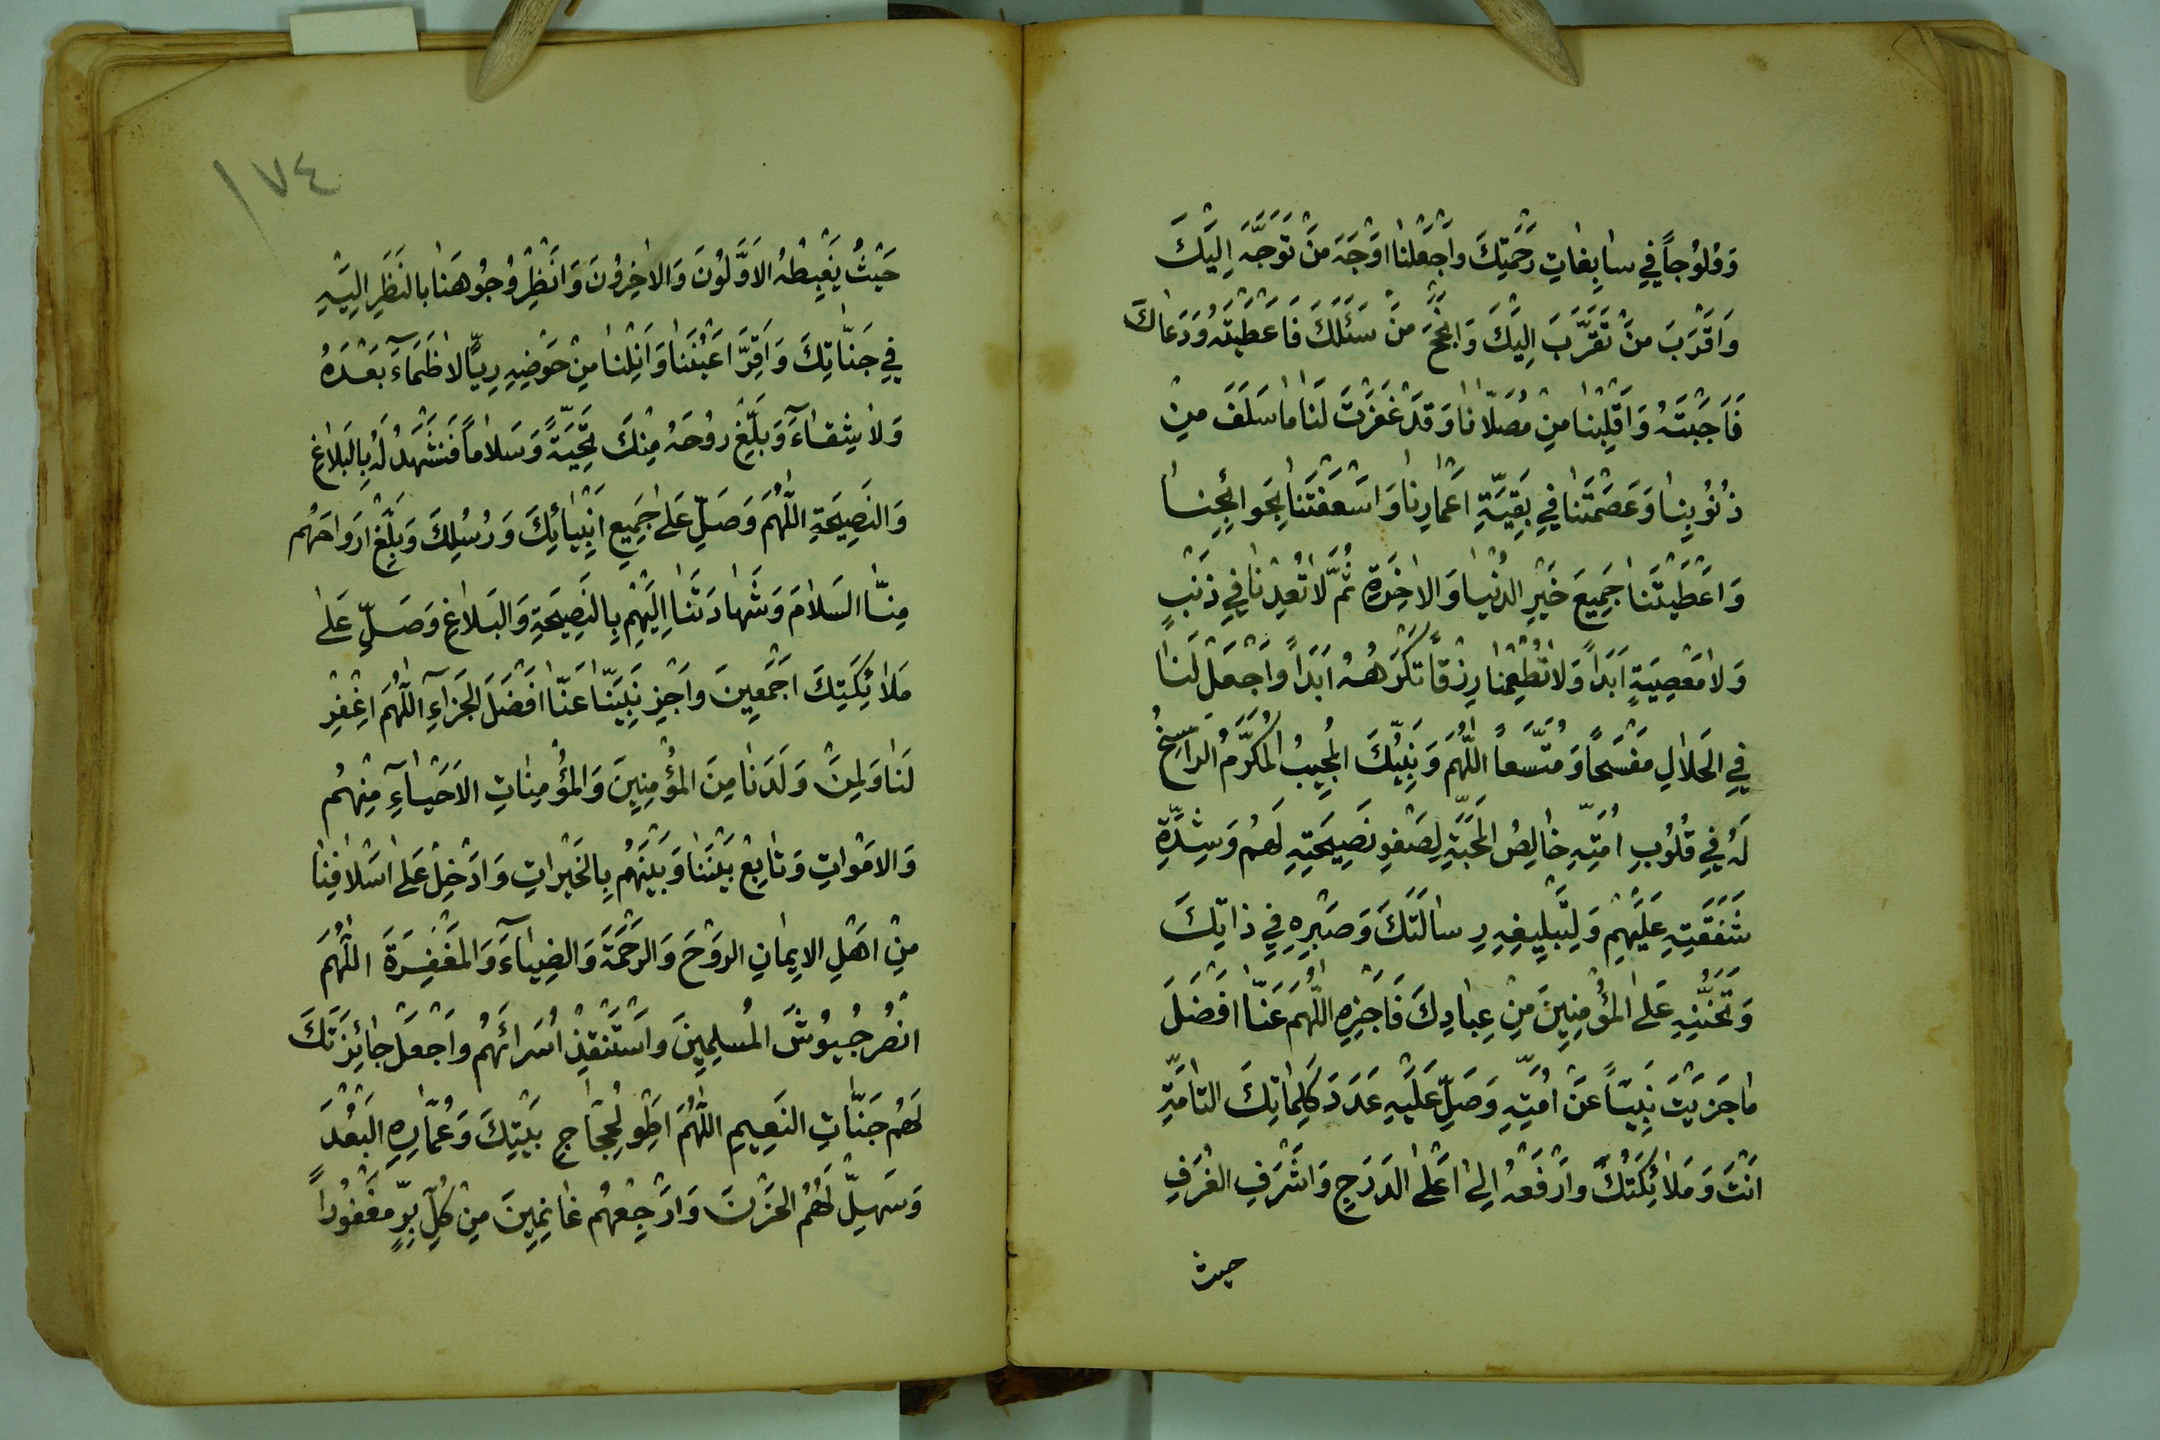 وَوُلُوجاً فِي سابِغاتِ رَحْمَتِكَ وَاجْعَلْنا اَوْجَهَ مَنْ تَوَجَّهَ اِلَيْكَ
وَاَقْرَبَ مَنْ تَقَرَّبَ اِلَيْكَ وَاَنْجَحَ مَنْ سَئَلَكَ فَاَعْطَيْتَهُ وَدَعاكَ
فَاَجَبْتَهُ وَاَقْلِبْنا مِنْ مُصَلّانا وَقَدْ غَفَرْتَ لَنا ما سَلَفَ مِنْ
ذُنُوبِنا وَعَصَمْتَنا فِي بَقِيَّةِ اَعْمارِنا وَاَسْعَفْتَنا بِحَوائِجِنا
وَاَعْطَيْتَنا جَمِيعَ خَيْرِ الدُنْيا وَالاخِرَةِ ثُمَّ لا تُعِدْنا فِي ذَنْبٍ
وَلا مَعْصِيَةٍ اَبَداً وَلا تُطْعِمْنا رِزْقاً تَكْرَهُهُ اَبَداً وَاجْعَلْ لَنا
فِي الحَلالِ مَفْسَحاً وَمُتَّسَعاً اللّهُمَ وَنَبِيُّكَ المُجِيبُ المُكَرَّمُ الراسِخُ
لَهُ فِي قُلُوبِ اُمَّتِهِ خالِصُ المَحَبَّةِ لِصَفْوِ نَصِيحَتِهِ لَهُمْ وَشِدَّةِ
شَفَقَتِهِ عَلَيْهِمْ وَلِتَبْلِيغِهِ رِسالَتَكَ وَصَبْرِهِ فِي ذاتِكَ
وَتَحَنُّنِهِ عَلى المُؤْمِنِينَ مِنْ عِبادِكَ فَاَجْزِهِ اللّهُمَ عَنّا اَفْضَلَ
ما جَزَيْتَ نَبِيّاً عَنْ اُمَّتِهِ وَصَلِّ عَلَيْهِ عَدَدَ كَلِماتِكَ التامَّةِ
اَنْتَ وَمَلائِكَتُكَ وَارْفَعْهُ اِلى اَعْلى الدَرَجِ وَاَشْرَفِ الغُرَفِ
حيث
١٧٤
حَيْثُ يَغْبِطُهُ الاَوَّلُونَ وَالاخِرُونَ وَانْظِرْ وُجُوهَنا بِالنَظَرِ اِلَيْهِ
فِي جَنّاتِكَ وَاَقِرَّ اَعْيُنَنا وَاَنِلْنا مِنْ حَوْضِهِ رِيّاً لا ظَمَآءَ بَعْدَهُ
وَلا شِقآءَ وَبَلِّغْ رُوحَهُ مِنْكَ تَحِيَّةً وَسَلاماً فَنَشْهَدُ لَهُ بِالبَلاغِ
وَالنَصِيحَةِ اللّهُمَ وَصَلِّ عَلى جَمِيعِ اَنْبِيائِكَ وَرُسُلِكَ وَبَلِّغْ اَرْواحَهُمْ
مِنّا السَلامَ وَشَهادَتَنا اِلَيْهِمْ بِالنَصِيحَةِ وَالبَلاغِ وَصَلِّ عَلى
مَلائِكَتِكَ اَجْمَعِينَ وَاجْزِ نَبِيَّنا عَنّا اَفْضَلَ الجَزآءِ اللّهُمَ اغْفِرْ
لَنا وَلِمَنْ وَلَدَنا مِنَ المُؤْمِنِينَ وَالمُؤْمِناتِ الاَحْيآءِ مِنْهُمْ
وَالاَمْواتِ وَتابِعْ بَيْنَنا وَبَيْنَهُمْ بِالخَيْراتِ وَاَدْخِلْ عَلى اَسْلافِنا
مِنْ اَهْلِ الاِيمانِ الرَوْحَ وَالرَحْمَةَ وَالضِيآءَ وَالمَغْفِرَةَ اللّهُمَ
انْصُرْ جُيُوشَ المُسْلِمِينَ وَاسْتَنْقِذْ اُسَرائَهُمْ وَاجْعَلْ جائِزَتَكَ
لَهُمْ جَنّاتِ النَعِيمِ اللّهُمَ اطْوِ لِحُجّاجِ بَيْتِكَ وَعُمّارِهِ البُعْدَ
وَسَهِّلْ لَهُمُ الحَزْنَ وَارْجِعْهُمْ غانِمِينَ مِنْ كُلِّ بِرٍّ مَغْفُوراً